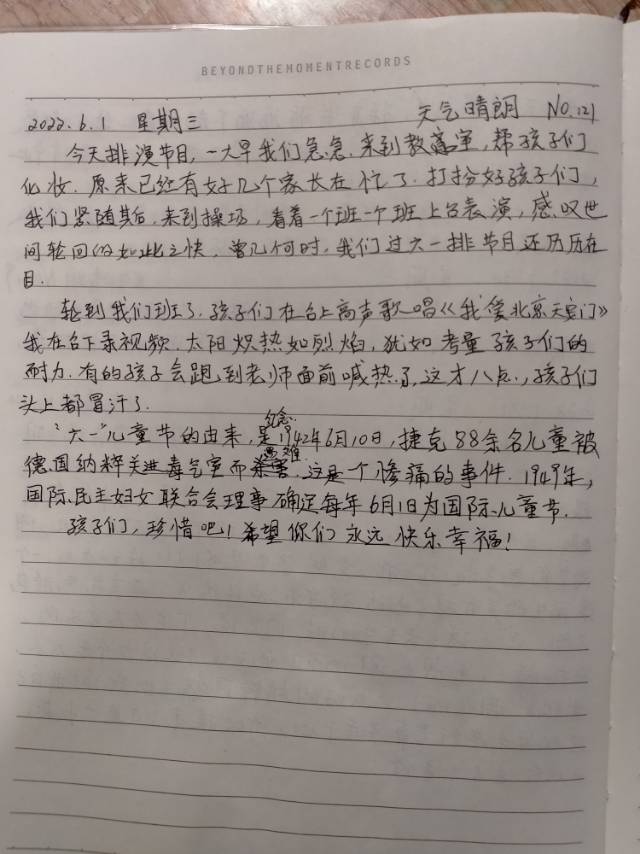 BEYONDTHEMOMENTRECORDS
2022.6.1 星期三 天气晴朗 NO.121
今天排演节目,一大早我们急急来到教室,帮孩子们
化妆.原来已经有好几个家长在忙了.打扮好孩子们,
我们紧随其后,来到操场,看着一个班一个班上台表演,感叹世
间轮回的如此之快,曾几何时,我们过六一排节目还历历在
目.
轮到我们班了.孩子们在台上高声歌唱《我爱北京天安门》
我在台下录视频.太阳炽热如烈焰,犹如考量孩子们的
耐力.有的孩子会跑到老师面前喊热了,这才八点.,孩子们
头上都冒汗了.
纪念
“六一”儿童节的由来,是1942年6月10日,捷克88余名儿童被
遇难
德国纳粹关进毒气室而杀害.这是一个惨痛的事件.1949年,
国际民主妇女联合会理事确定每年6月1日为国际儿童节.
孩子们,珍惜吧!希望你们永远快乐幸福!